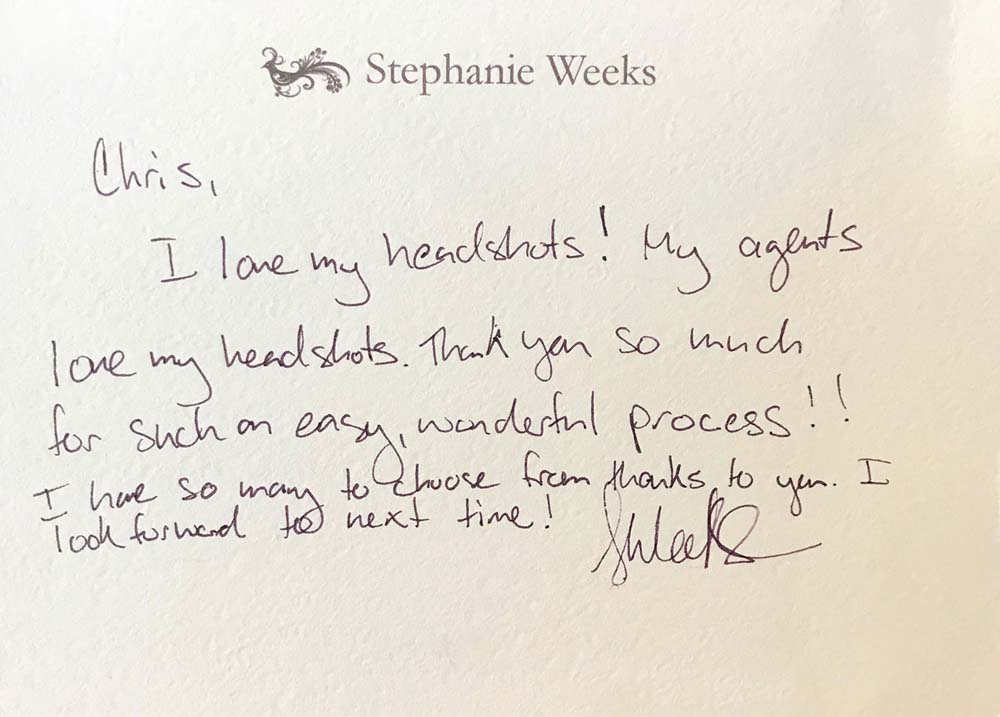 Stephanie Weeks
Chris,
I love my headshots! My agents
love my headshots. Thank you so much
for such an easy, wonderful process!!
I have so many to choose from thanks to you. I
look forward to next time!
SWeeks